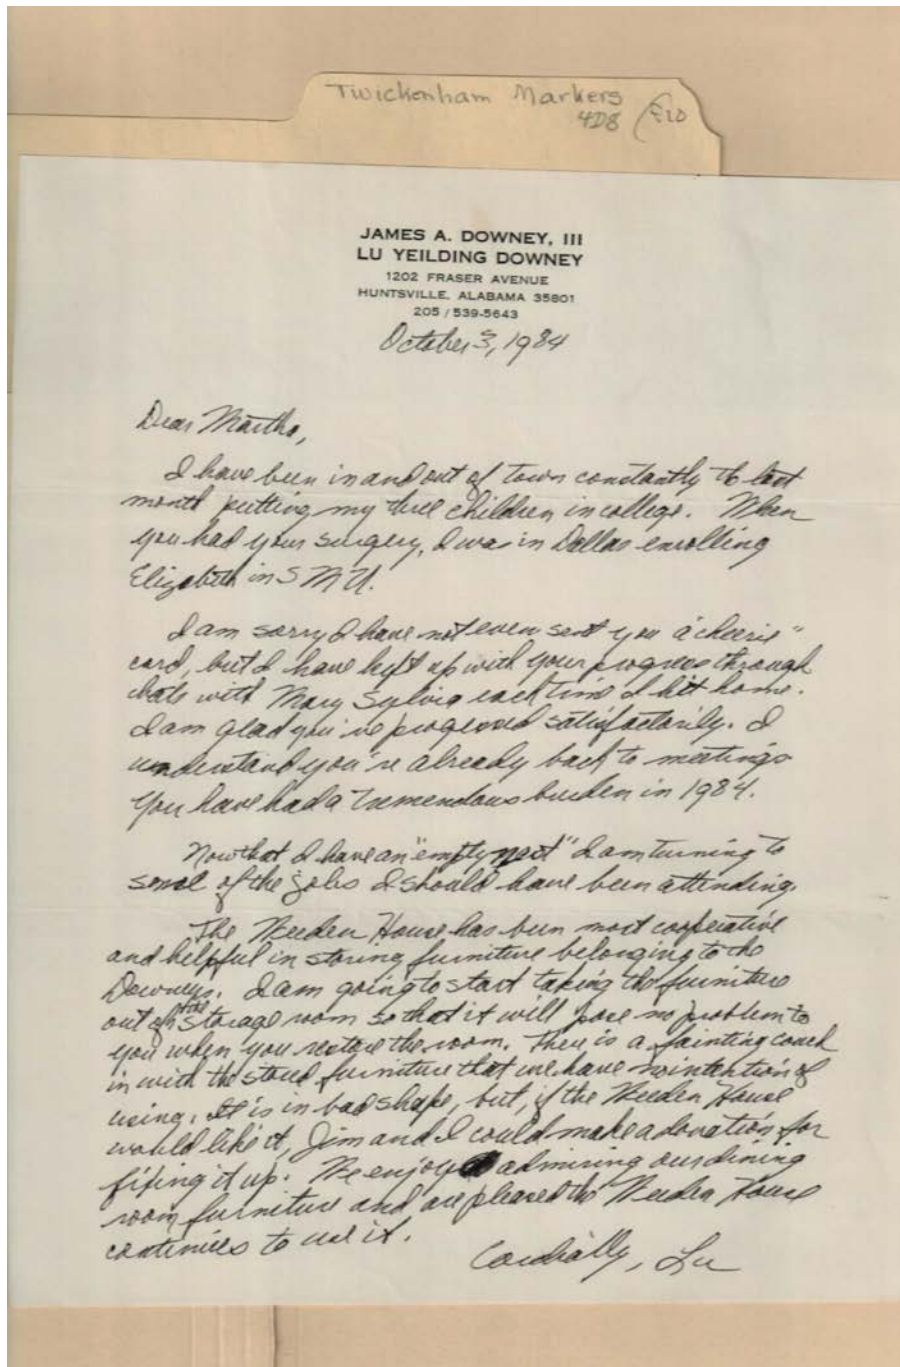 Twickenham Markers
4D8
JAMES A. DOWNEY, III
LU YEILDING DOWNEY
1202 FRASER AVENUE
HUNTSVILLE, ALABAMA 35801
205 / 539-5643
October 3, 1984
Dear Martha,
I have been in and out of town constantly the last
month putting my three children in college. When
you had your surgery, I was in Dallas enrolling
Elizabeth in SMU.
I am sorry I have not even sent you a "cheerie"
card, but I have kept up with your progress through
chats with Mary Sylvia each time I hit home.
I am glad you've progressed satisfactorily. I
understand you're already back to meetings
You have had a tremendous burden in 1984.
Now that I have an "empty nest" I am turning to
some of the jobs I should have been attending.
The Weeden House has been most cooperative
and helpful in storing furniture belonging to the
Downeys. I am going to start taking the furniture
out of the storage room so that it will pose no problem to
you when you restore the room. There is a fainting couch
in with the stored furniture that we have no intention of
using. It is in bad shape, but, if the Weeden House
would like it, Jim and I could make a donation for
fixing it up. We enjoy admiring our dining
room furniture and are pleased the Weeden House
continues to use it.
Cordially, Lu